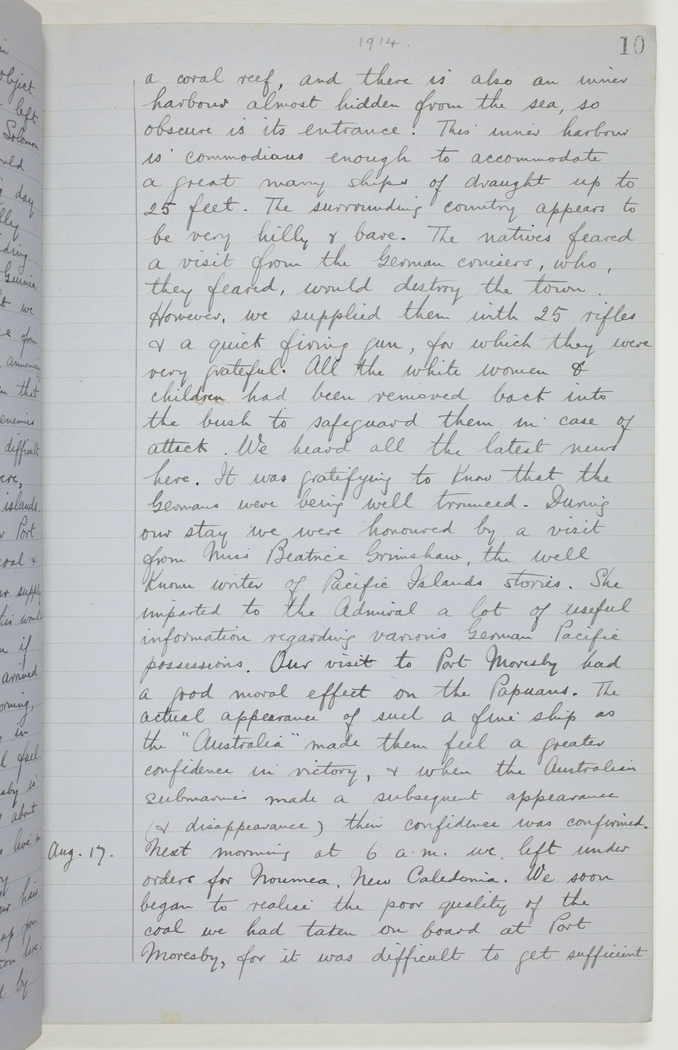 1914.
10
a coral reef, and there is also an inner
harbour almost hidden from the sea, so
obscure is its entrance. This inner harbour
is commodious enough to accommodate
a great many ships of draught up to
25 feet. The surrounding country appears to
be very hilly & bare. The natives feared
a visit from the German cruisers, who,
they feared, would destroy the town.
However, we supplied them with 25 rifles
& a quick firing gun, for which they were
very grateful. All the white women &
children had been removed back into
the bush to safeguard them in case of
attack. We heard all the latest news
here. It was gratifying to know that the
Germans were being well trounced. During
our stay we were honoured by a visit
from Miss Beatrice Grimshaw, the well
known writer of Pacific Islands stories. She
imparted to the Admiral a lot of useful
information regarding various German Pacific
possessions. Our visit to Port Moresby had
a good moral effect on the Papuans. The
actual appearance of such a fine ship as
the "Australia" made them feel a greater
confidence in victory, & when the Australian
submarines made a subsequent appearance
(& disappearance) their confidence was confirmed.
Aug. 17. Next morning at 6 a.m. we left under
orders for Noumea, New Caledonia. We soon
began to realise the poor quality of the
coal we had taken on board at Port
Moresby, for it was difficult to get sufficient
object
left
Solomon
day
Guinea
we
from
that
enemies
difficult
islands.
Port
coal &
supply
if
arrived
in
fuel
is
about
by